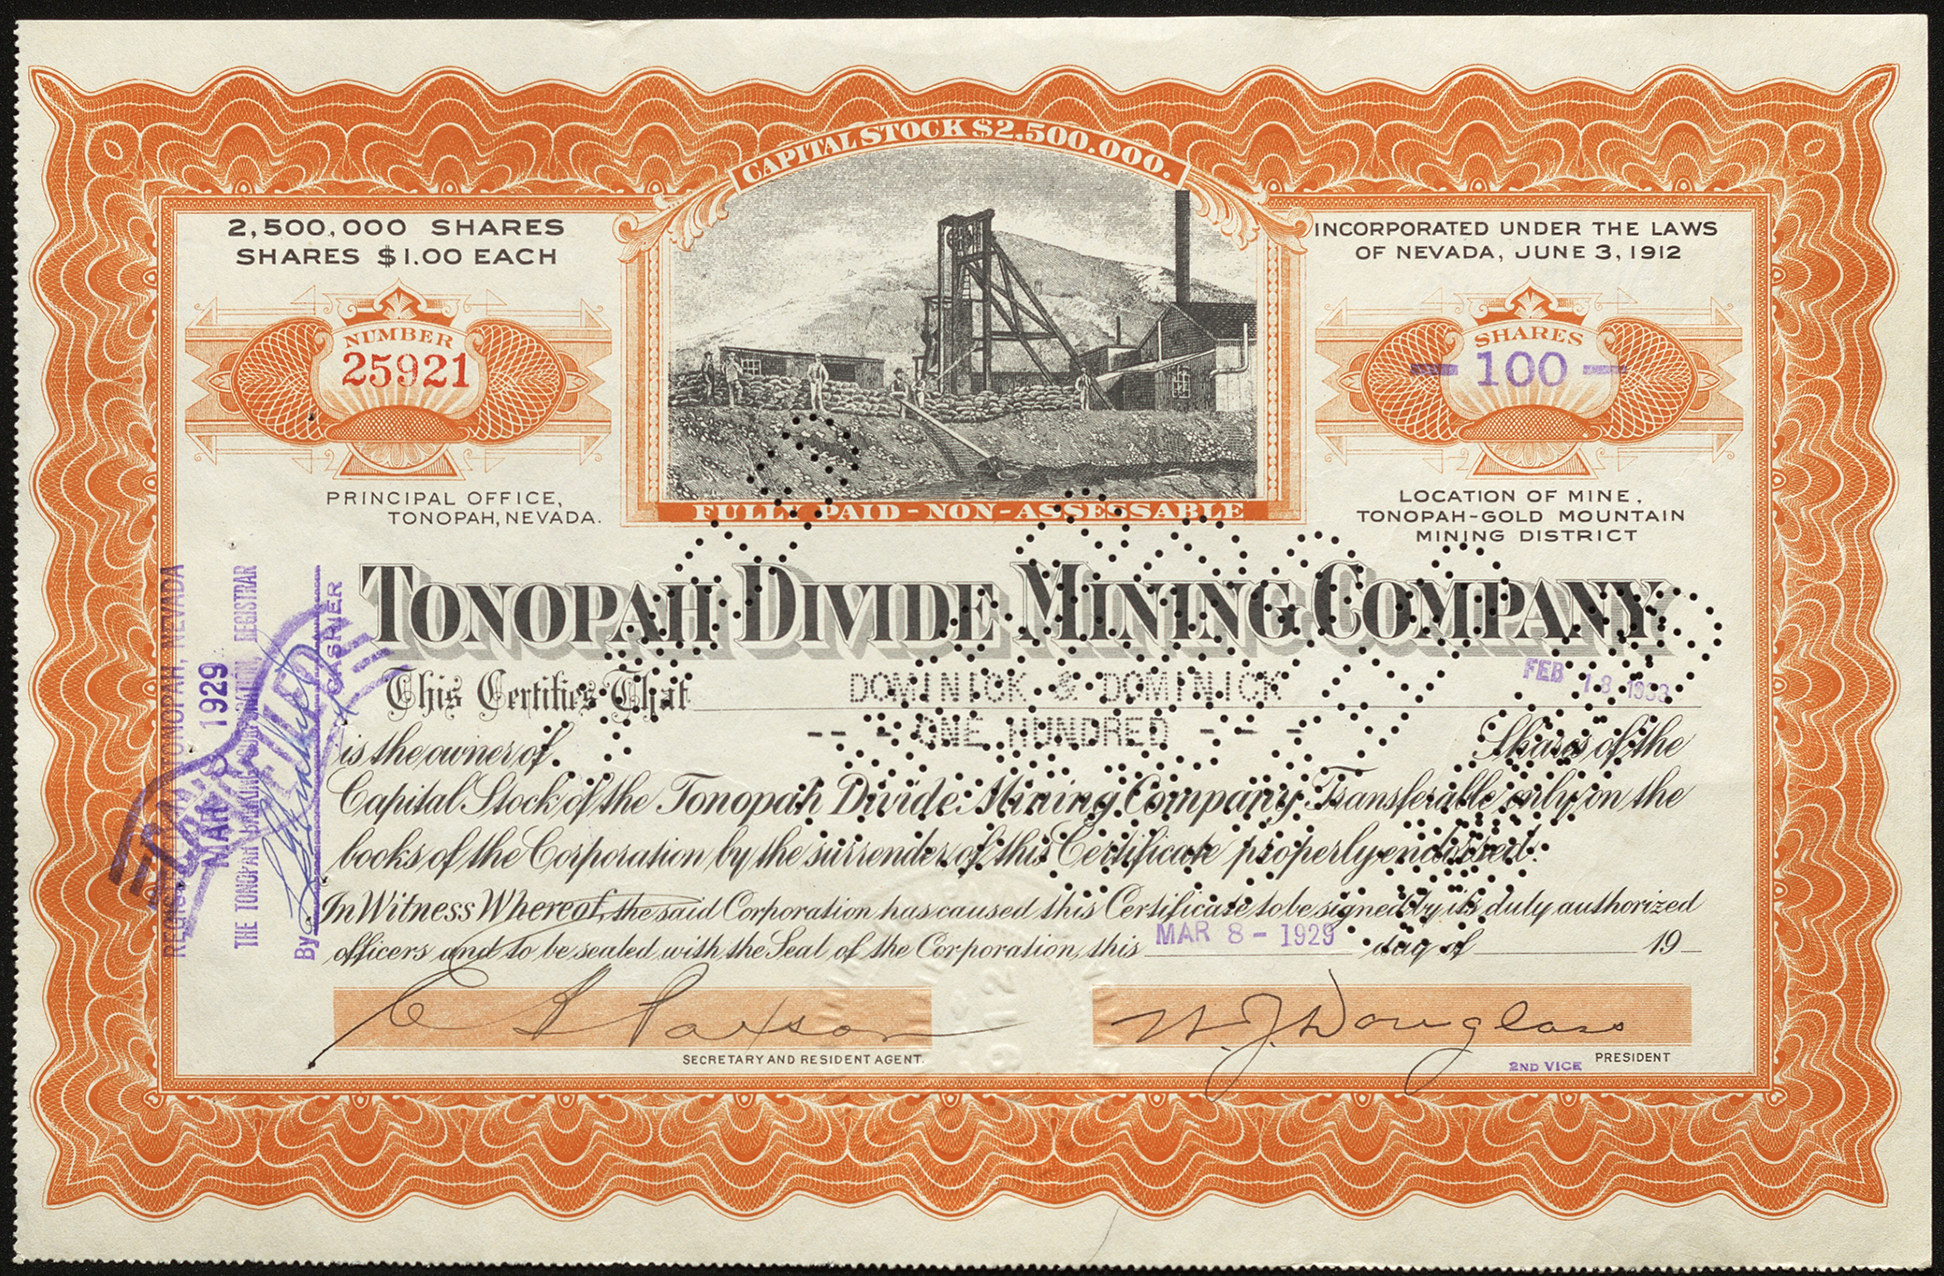 CAPITAL STOCK $2,500.000.
2,500,000 SHARES
SHARES $1.00 EACH
INCORPORATED UNDER THE LAWS
OF NEVADA, JUNE 3, 1912
NUMBER
25921
SHARES
- 100 -
PRINCIPAL OFFICE,
TONOPAH, NEVADA.
FULLY PAID - NON-ASSESSABLE
LOCATION OF MINE,
TONOPAH-GOLD MOUNTAIN
MINING DISTRICT
TONOPAH DIVIDE MINING COMPANY
FEB 18 1933
This Certifies That DOMINICK & DOMINICK
is the owner of -- - ONE HUNDRED - - - Shares of the
Capital Stock of the Tonopah Divide Mining Company, Transferable only on the
books of the Corporation by the surrender of this Certificate properly endorsed.
In Witness Whereof, the said Corporation has caused this Certificate to be signed by its duly authorized
officers and to be sealed with the Seal of the Corporation, this MAR 8 - 1929 day of 19
C S Paxson
H. J. Douglass
SECRETARY AND RESIDENT AGENT.
2ND VICE PRESIDENT
TONOPAH, NEVADA
MAR 8 1929
CANCELLED
THE TONOPAH BANKING CORPORATION, REGISTRAR
By CASHIER
1912